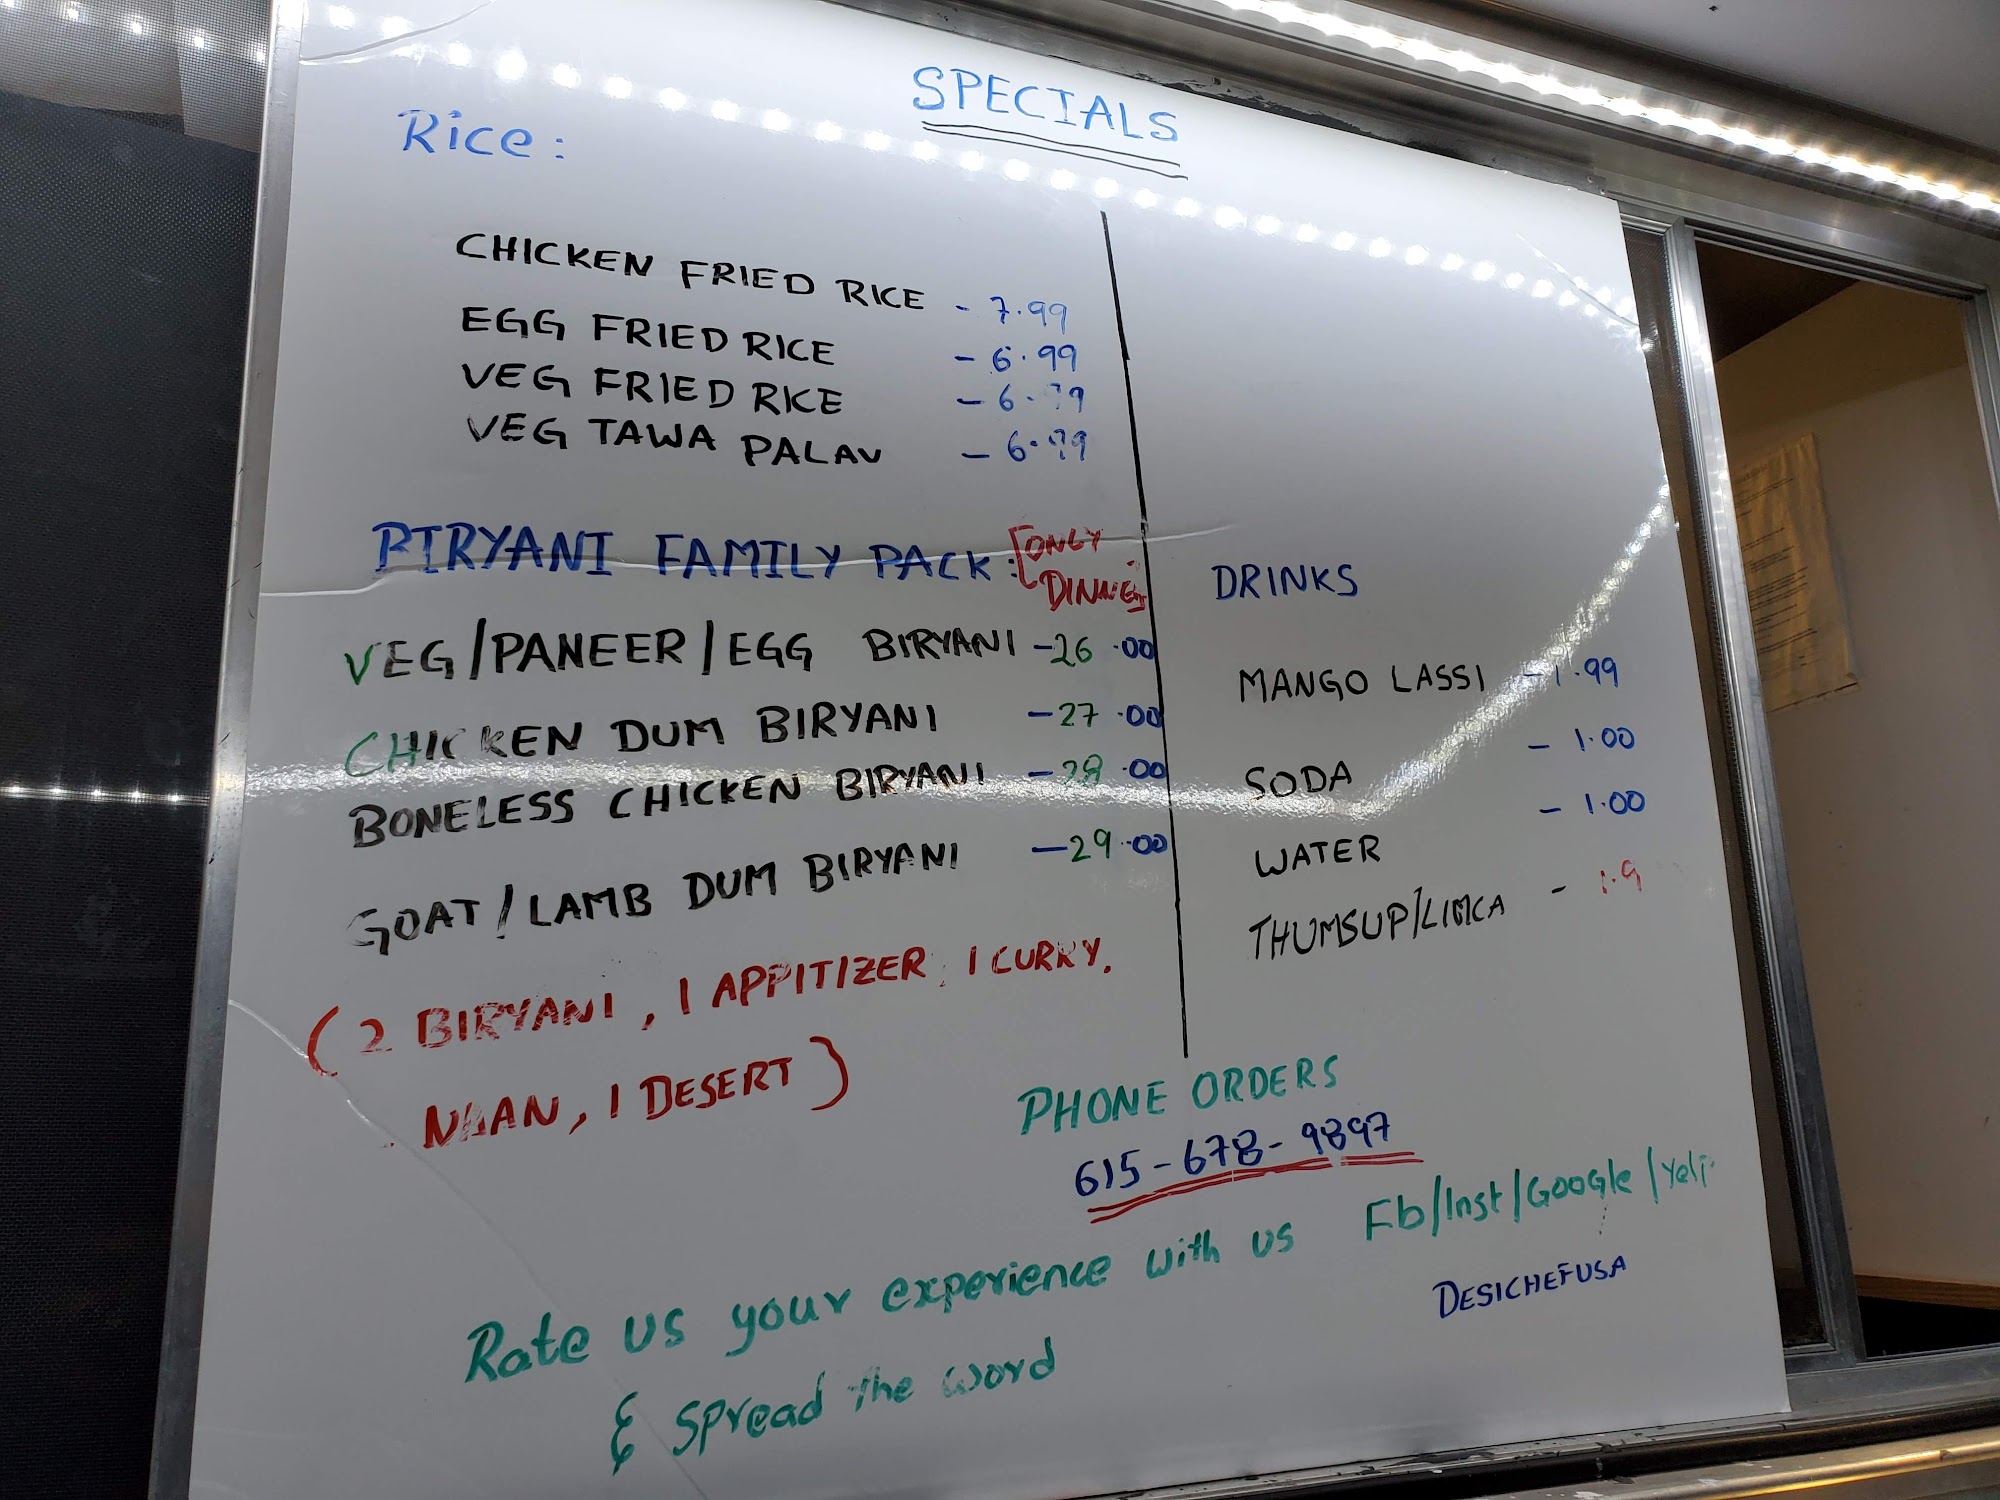 SPECIALS
Rice:
CHICKEN FRIED RICE - 7.99
EGG FRIED RICE - 6.99
VEG FRIED RICE - 6.99
VEG TAWA PALAV - 6.99
BIRYANI FAMILY PACK : [ONLY
DINNER]
VEG/PANEER/EGG BIRYANI - 26.00
CHICKEN DUM BIRYANI - 27.00
BONELESS CHICKEN BIRYANI - 28.00
GOAT/LAMB DUM BIRYANI - 29.00
(2 BIRYANI, 1 APPITIZER, 1 CURRY,
NAAN, 1 DESERT)
DRINKS
MANGO LASSI - 1.99
SODA - 1.00
WATER - 1.00
THUMSUP/LIMCA -
PHONE ORDERS
615-678-9897
Rate us your experience with us Fb/Inst/Google/Yelp
& Spread the word
DESICHEFUSA